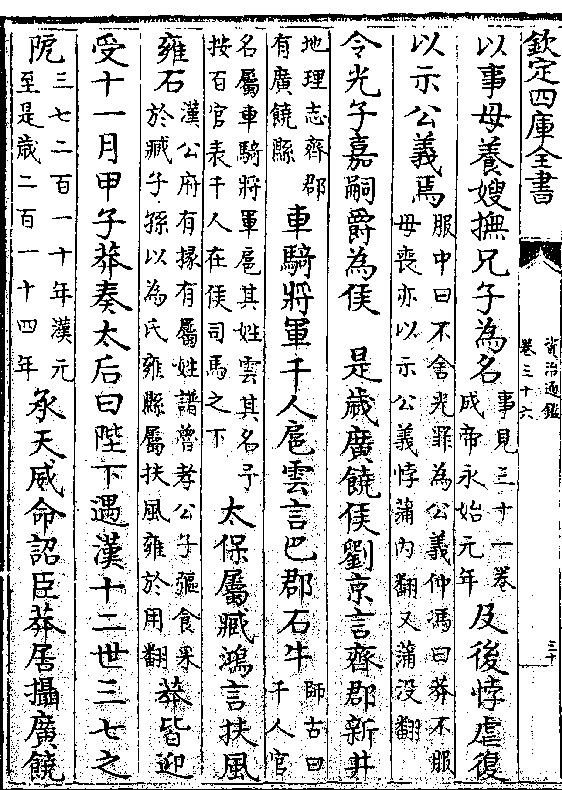 欽定四庫全書
資治通鑑
卷三十六
三十
以事母養嫂撫兄子為名事見三十一卷成帝永始元年及後悖虐復
以示公義焉服中曰不舍光罪為公義仲馮曰莽不服母喪亦以示公義悖蒲內翻又蒲沒翻
令光子嘉嗣爵為侯 是歲廣饒侯劉京言齊郡新井
地理志齊郡有廣饒縣車騎將軍千人扈雲言巴郡石牛師古曰千人官
名屬車騎將軍扈其姓雲其名予按百官表千人在候司馬之下太保屬臧鴻言扶風
雍石漢公府有掾有屬姓譜魯孝公子彄食采於臧子孫以為氏雍縣屬扶風雍於用翻莽皆迎
受十一月甲子莽奏太后曰陛下遇漢十二世三七之
阸三七二百一十年漢元至是歲二百一十四年承天威命詔臣莽居攝廣饒